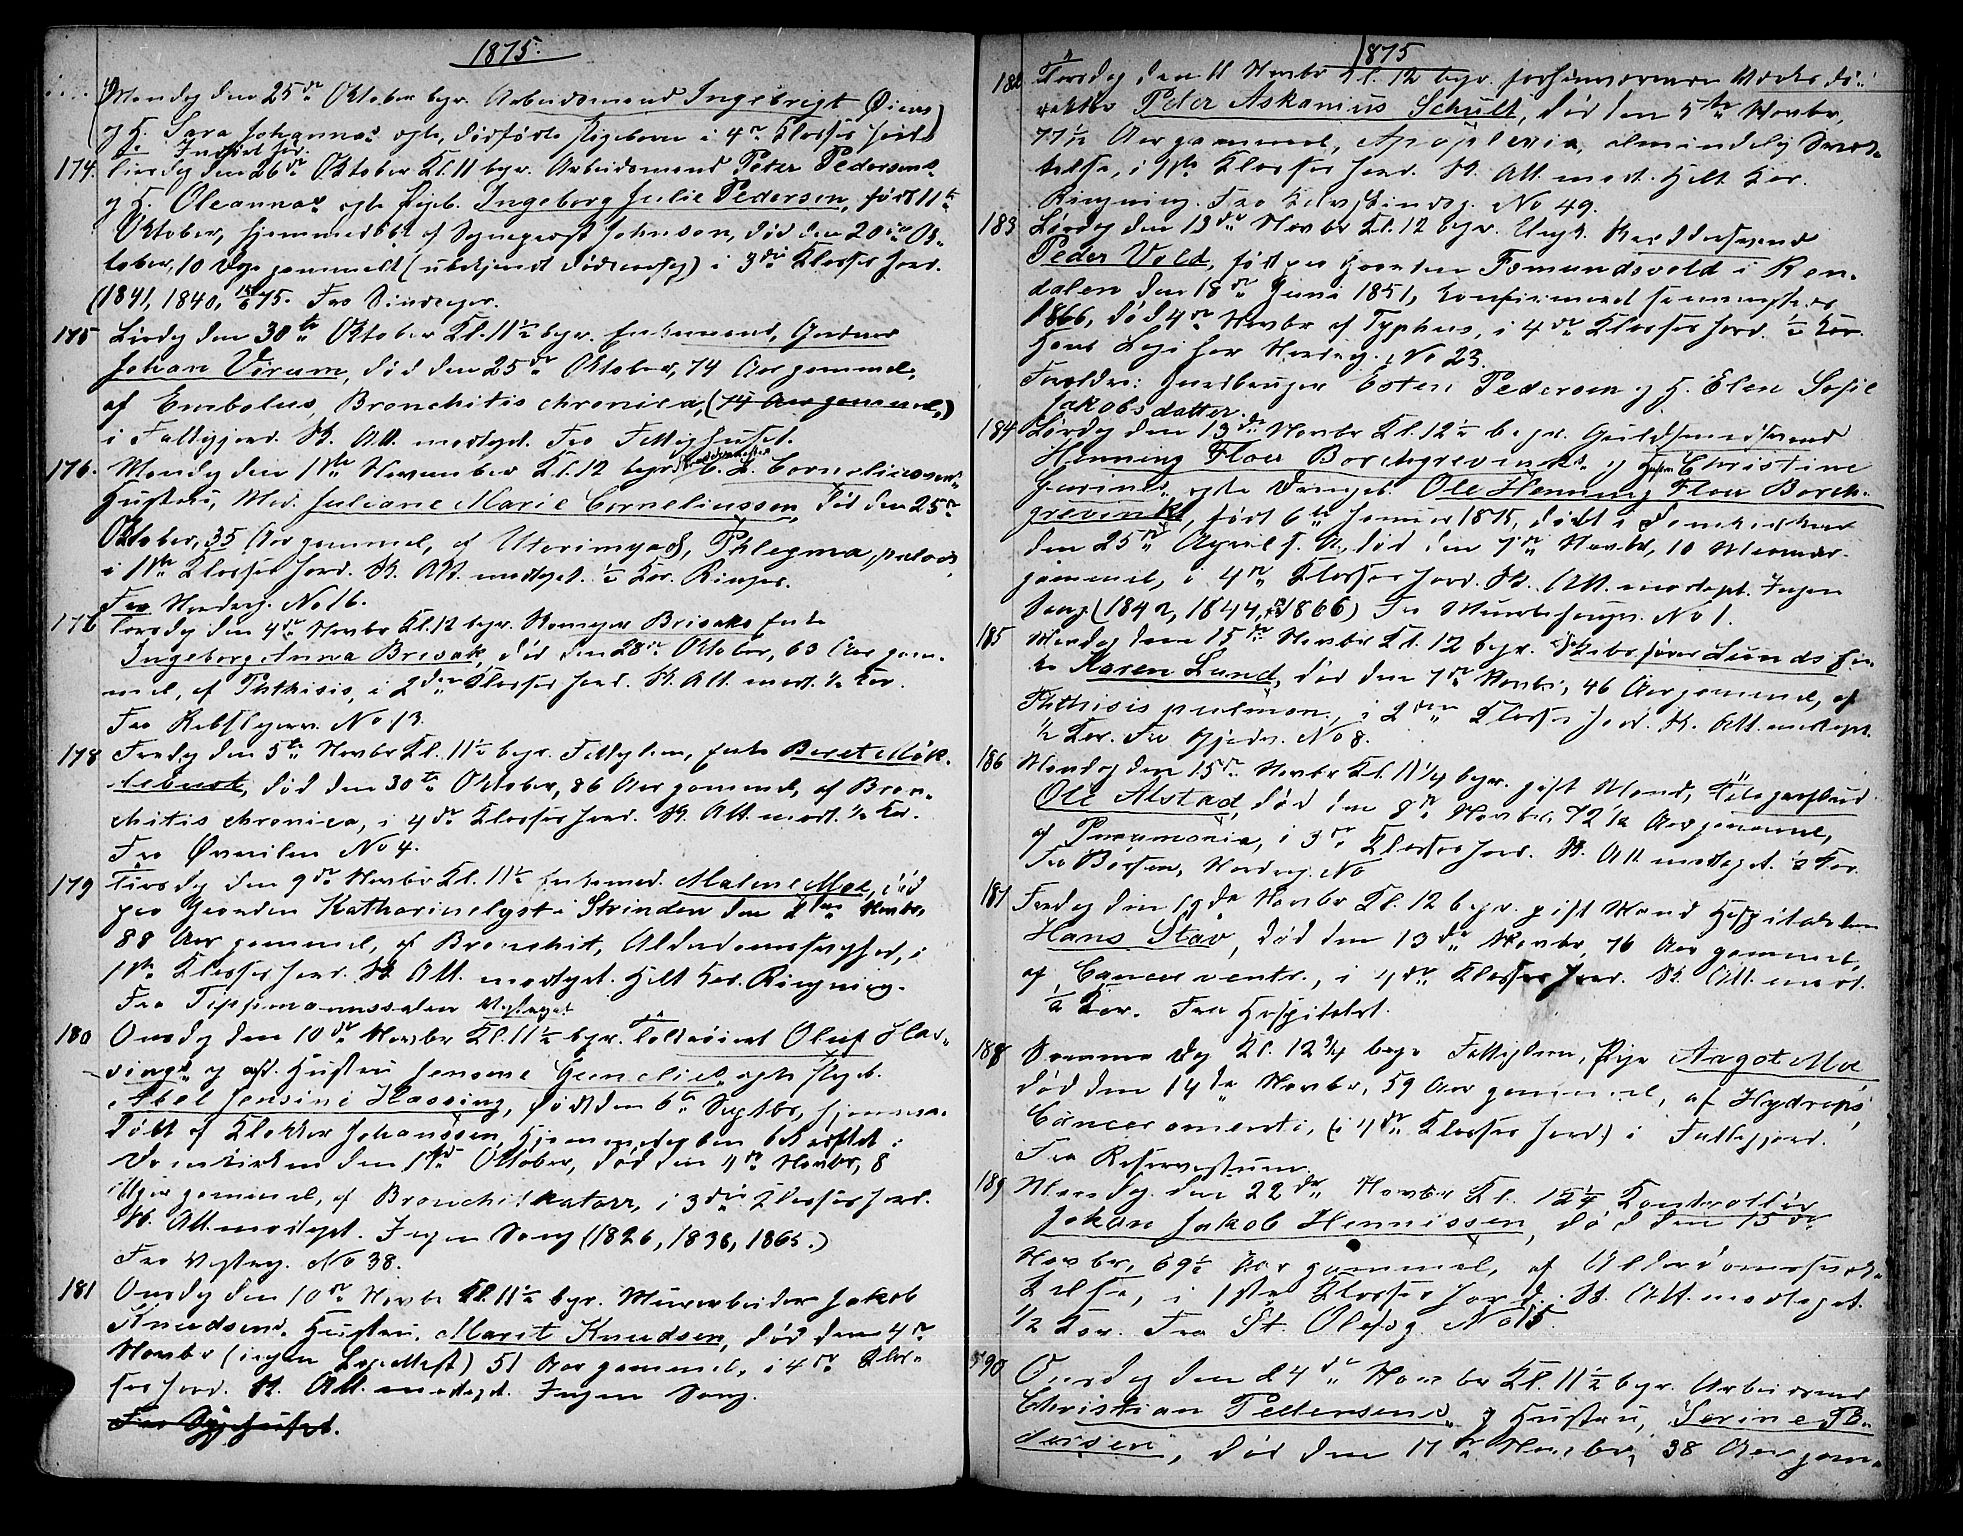 1875.
Mandag den 25de Oktober begr. Arbeidsmand Ingebrigt Øiens
og H. Sara Johannas ægte, dødfødte Pigebarn i 4de Klasses Jord
174. Tirsdag den 26de Oktober Kl. 11 begr. Arbeidsmand Peter Pedersens
og H. Oleannas ægte Pigeb. Ingeborg Julie Pedersen, født 11te
Oktober, hjemmedøbt af Johnsen, død den 20de Ok-
tober, 10 Dage gammelt (ubekjendt Dødsaarsag) i 3die Klasses Jord.
(1841, 1840, 75. Fra
175 Lørdag den 30te Oktober Kl. 11½ begr. Enkemand, Gartner
Johan Virum, død den 25de Oktober, 74 Aar gammel,
af Embolus, Bronchitis chronica, (74 Aar gammel,)
i Fattigjord. Sk. Att. modtaget. Fra Fattighuset.
176. Mandag den 1ste November Kl. 12 begr. C. L. Corneliussens
Hustru, Mad. Juliane Marie Corneliussen, død den 25de
Oktober, 35 Aar gammel, af Phlegma
i 1ste Klasses Jord. Sk. Att. modtaget. ½ Kor. Ringn.
Fra Nordreg. No 16.
176 Torsdag den 4de Novbr Kl. 12 begr. Brevaks Enke
Ingeborg Anna Brevak, død den 28de Oktober, 63 Aar gam-
mel, af Phthisis, i 2den Klasses Jord. Sk. Att. modt. ½ Kor.
Fra Rebslagerv. No 13.
178 Fredag den 5te Novbr Kl. 11½ begr. Fattiglem, Enke Beret Møk-
lebust, død den 30te Oktober, 86 Aar gammel, af Bron-
chitis chronica, i 4de Klasses Jord. Sk. Att. modt. ½ Kor.
Fra Øvreilen No 4.
179 Tirsdag den 9de Novbr Kl. 11½ Enkemad. Malene Moe, død
paa Gaarden Katharinelyst i Strinden den 2den Novbr,
88 Aar gammel, af Bronchit, Alderdomssvaghed, i
1ste Klasses Jord. Sk. Att. modtaget. Helt Kor. Ringning.
Fra Tippmannssalen
180 Onsdag den 10de Novbr Kl. 11½ begr. Toldrorist Oluf Has-
sings og afd. Hustru Jensine ægte Pigeb.
Abel Jensine Hassing, født den 6te Septbr, hjemme-
døbt af Klokker Johanssen, Hjemmedaaben bekræftet i
Domkirken den 1ste Oktober, død den 4de Novbr, 8
Uger gammel, af Bronchitkatarr, i 3die Klasses Jord.
Sk. Att. modtaget. Ingen Sang (1826, 1836, 1865.)
Fra Vestreg. No 38.
181 Onsdag den 10de Novbr Kl. 11½ begr. Murerarbeider Jakob
Knudsens Hustru, Marit Knudsen, død den 4de
Novbr (ingen Lægeattest) 51 Aar gammel, i 4de Klas-
ses Jord. Sk. Att. modtaget. Ingen Sang.
Fra Sygehuset.
1875
182 Torsdag den 11 Novbr Kl. 12 begr. forhenværende Værksdi-
rektør Peter Askanius Schult, død den 5te Novbr,
77½ Aar gammel, Apoplexia, almindelig Svæk-
kelse, i 1ste Klasses Jord. Sk. Att. modt. Helt Kor.
Ringning. Fra No 49.
183 Lørdag den 13de Novbr Kl. 12 begr. Ungk.
Peder Vold, født paa Gaarden Fomundsvold i Ren-
dalen den 18de Juni 1851, konfirmeret sammesteds
1866, død 4de Novbr af Typhus, i 4de Klasses Jord. ½ Kor.
Hans Logi har No 23.
Forældre: Gaardbruger Esten Pedersen og H. Elen Sofie
Jakobsdatter.
184 Lørdag den 13de Novbr Kl. 12½ begr. Guldsmedsvend
Henning Floer Borchgrevinks og Hustru Christine
ægte Drengeb. Ole Henning Floer Borch-
grevink, født 6te Januar 1875, døbt i Domkirken
den 25de April s. A., død den 7de Novbr, 10 Maaneder
gammel, i 4de Klasses Jord. Sk. Att. modtaget. Ingen
Sang (1842, 1844, 1866) Fra No 1.
185 Mandag den 15de Novbr Kl. 12 begr. Skibsfører Lunds En-
ke Karen Lund, død den 7de Novbr, 46 Aar gammel, af
Phthisis pulmon., i 2den Klasses Jord. Sk. Att. modtaget.
½ Kor. Fra No 8.
186 Mandag den 15de Novbr Kl. 11¼ begr. gift Mand, Telegrafbud
Ole Alstad, død den 8de Novbr, 72½ Aar gammel,
af Pneumonia, i 3die Klasses Jord. Sk. Att. modtaget. ½ Kor.
Fra Børsen, Nordreg. No
187 Fredag den 19de Novbr Kl. 12 begr. gift Mand Hospitalslem
Hans Stav, død den 13de Novbr, 76 Aar gammel,
af Cancer ventr., i 4de Klasses Jord. Sk. Att. modt.
½ Kor. Fra Hospitalet.
188 Samme Dag Kl. 12¾ begr. Fattiglem, Pige Angot Moe
død den 14de Novbr, 59 Aar gammel, af Hydrops,
Cancer omenti, (i 4de Klasses Jord) i Fattigjord.
Fra
189 Mandag den 22de Novbr Kl. 12¼ Kontrollør
Johan Jakob Hennissen, død den 15de
Novbr, 69½ Aar gammel, af Alderdomssvæk-
kelse, i 1ste Klasses Jord. Sk. Att. modtaget.
1/2 Kor. Fra St. Olafsg. No 15.
190 Onsdag den 24de Novbr Kl. 11½ begr. Arbeidsmd
Christian Pedersens Hustru, Serine Pe-
dersen, død den 17de Novbr, 38 Aar gam-